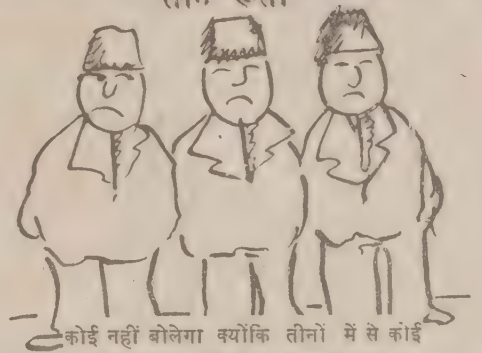 तीन
कोई नहीं बोलेगा क्योंकि तीनों में से कोई